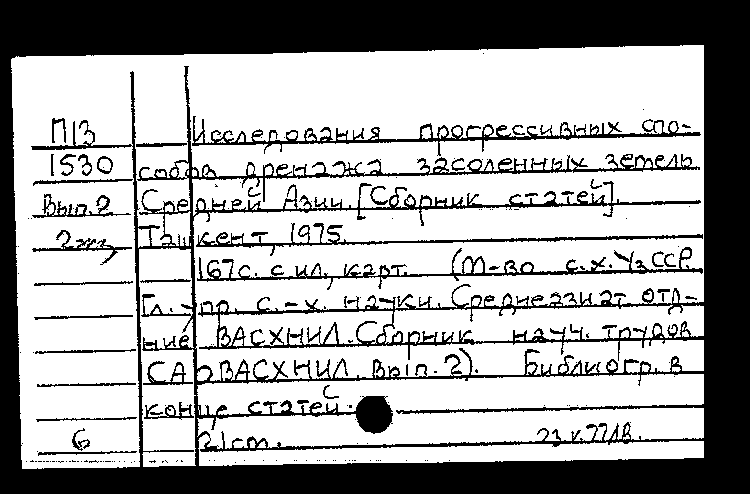 П13 Исследования прогрессивных спо-
1530 собов дренажа засоленных земель
Вып.2 Средней Азии. [Сборник статей].
2 Ташкент, 1975.
167с. с ил., карт. (М-во с.х. УзССР.
Гл. упр. с.-х. науки. Среднеазиат. отд-
ние ВАСХНИЛ. Сборник науч. трудов
САОВАСХНИЛ. Вып. 2). Библиогр. в
конце статей.
6 21см.